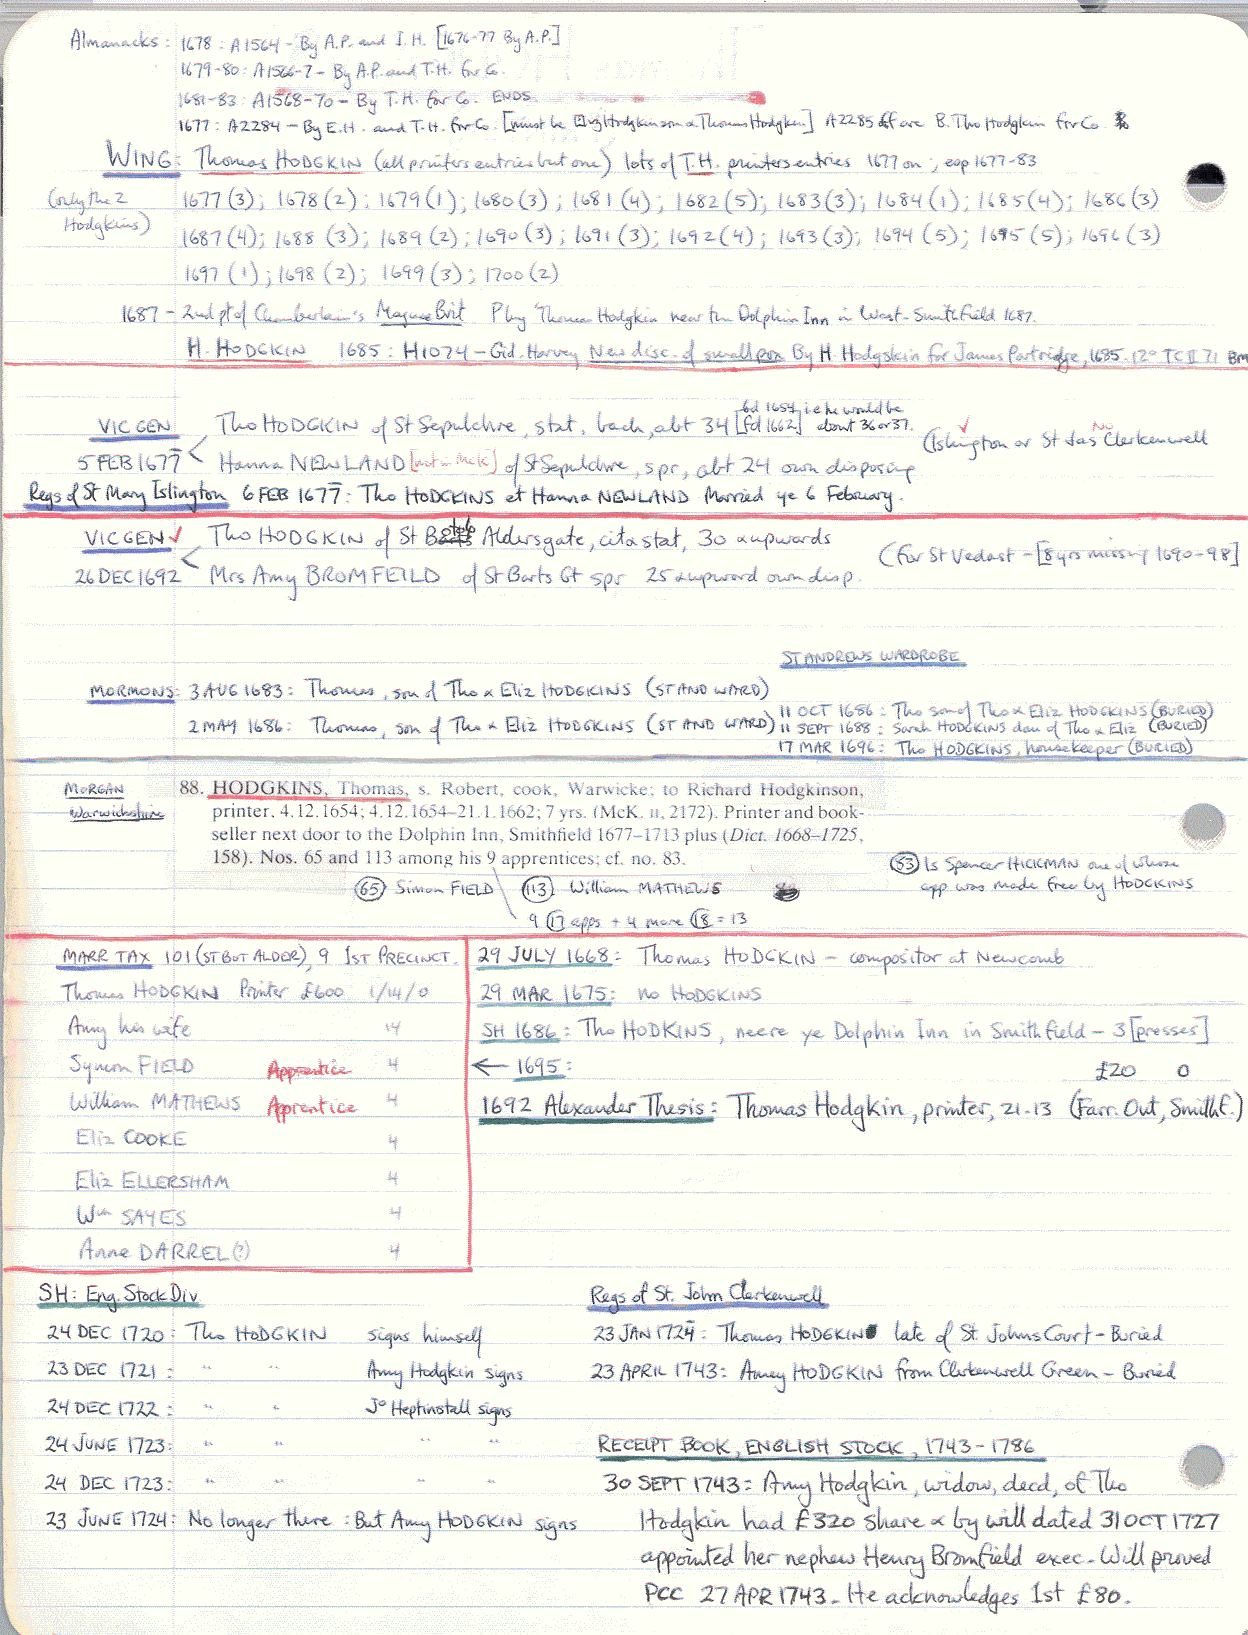 Almanacks: 1678: A1564 - By A.P. and I.H. [1676-77 By A.P.]
1679-80: A1566-7 - By A.P. and T.H. for Co.
1681-83: A1568-70 - By T.H. for Co. ENDS.
1677: A2284 - By E.H. and T.H. for Co. [must be Hodgkinson & Thomas Hodgkin] A2285 ff are B. Tho Hodgkin for Co.
WING: Thomas HODGKIN (all printers entries but one) lots of T.H. printers entries 1677 on; esp 1677-83
(only the 2 Hodgkins) 1677 (3); 1678 (2); 1679 (1); 1680 (3); 1681 (4); 1682 (5); 1683 (3); 1684 (1); 1685 (4); 1686 (3)
1687 (4); 1688 (3); 1689 (2); 1690 (3); 1691 (3); 1692 (4); 1693 (3); 1694 (5); 1695 (5); 1696 (3)
1697 (1); 1698 (2); 1699 (3); 1700 (2)
1687 - 2nd pt of Chamberlain's Magnae Brit P by Thomas Hodgkin near the Dolphin Inn in West-Smithfield 1687.
H. HODGKIN 1685: H1074 - Gid. Harvey New disc. of small pox By H. Hodgskin for James Partridge, 1685. 12° TC II 71 Bm
bd 1654 i.e he would be
VIC GEN Tho HODGKIN of St Sepulchre, stat, bach, abt 34 [fd 1662] about 36 or 37.
(Islington or St Jas Clerkenwell
NO
5 FEB 1677 Hanna NEWLAND [not in McK] of St Sepulchre, spr, abt 24 own disposing
Regs of St Mary Islington 6 FEB 1677: Tho HODGKINS et Hanna NEWLAND Married ye 6 February.
VIC GEN Tho HODGKIN of St Botolph Aldersgate, cit & stat, 30 & upwards
(For St Vedast - [8 yrs missing 1690-98]
26 DEC 1692 Mrs Amy BROMFEILD of St Barts Gt spr 25 & upward own disp.
ST ANDREWS WARDROBE
MORMONS: 3 AUG 1683: Thomas, son of Tho & Eliz HODGKINS (ST AND WARD)
2 MAY 1686: Thomas, son of Tho & Eliz HODGKINS (ST AND WARD)
11 OCT 1686: Tho son of Tho & Eliz HODGKINS (BURIED)
11 SEPT 1688: Sarah HODGKINS dau of Tho & Eliz (BURIED)
17 MAR 1696: Tho HODGKINS, housekeeper (BURIED)
MORGAN
Warwickshire
88. HODGKINS, Thomas, s. Robert, cook, Warwicke; to Richard Hodgkinson,
printer, 4.12.1654; 4.12.1654–21.1.1662; 7 yrs. (McK. II, 2172). Printer and book-
seller next door to the Dolphin Inn, Smithfield 1677–1713 plus (Dict. 1668–1725,
158). Nos. 65 and 113 among his 9 apprentices; cf. no. 83.
(65) Simon FIELD (113) William MATHEWS
(83) Is Spencer HICKMAN one of whose
app was made free by HODGKINS
9 (17) apps + 4 more (18) = 13
MARR TAX 101 (ST BOT ALDER), 9 1ST PRECINCT.
Thomas HODGKIN Printer £600 1/14/0
Amy his wife 14
Symon FIELD Apprentice 4
William MATHEWS Apprentice 4
Eliz COOKE 4
Eliz ELLERSHAM 4
Wm SAYES 4
Anne DARREL (?) 4
29 JULY 1668: Thomas HODGKIN - compositor at Newcomb
29 MAR 1675: no HODGKINS
SH 1686: Tho HODKINS, neere ye Dolphin Inn in Smithfield - 3 [presses]
← 1695: £20 0
1692 Alexander Thesis: Thomas Hodgkin, printer, 21-13 (Farr. Out, Smithf.)
SH: Eng. Stock Div
24 DEC 1720: Tho HODGKIN signs himself
23 DEC 1721: " " Amy Hodgkin signs
24 DEC 1722: " " Jo Heptinstall signs
24 JUNE 1723: " " " "
24 DEC 1723: " " " "
23 JUNE 1724: No longer there: But Amy HODGKIN signs
Regs of St. John Clerkenwell
23 JAN 1724: Thomas HODGKIN late of St. Johns Court - Buried
23 APRIL 1743: Amey HODGKIN from Clerkenwell Green - Buried
RECEIPT BOOK, ENGLISH STOCK, 1743-1786
30 SEPT 1743: Amy Hodgkin, widow, decd, of Tho
Hodgkin had £320 share & by will dated 31 OCT 1727
appointed her nephew Henry Bromfield exec. Will proved
PCC 27 APR 1743. He acknowledges 1st £80.